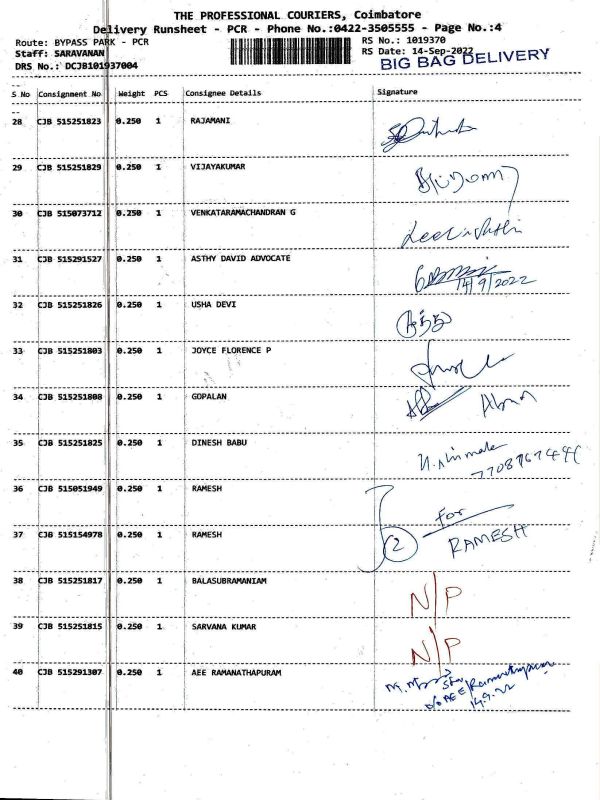 THE PROFESSIONAL COURIERS, Coimbatore
Delivery Runsheet - PCR - Phone No.:0422-3505555 - Page No.:4
Route: BYPASS PARK - PCR
RS No.: 1019370
Staff: SARAVANAN
RS Date: 14-Sep-2022
DRS No.: DCJB101937004
BIG BAG DELIVERY
S No Consignment No Weight PCS Consignee Details Signature
28 CJB 515251823 0.250 1 RAJAMANI
29 CJB 515251829 0.250 1 VIJAYAKUMAR
30 CJB 515073712 0.250 1 VENKATARAMACHANDRAN G
31 CJB 515291527 0.250 1 ASTHY DAVID ADVOCATE
14/9/2022
32 CJB 515251826 0.250 1 USHA DEVI
33 CJB 515251803 0.250 1 JOYCE FLORENCE P
34 CJB 515251808 0.250 1 GOPALAN
35 CJB 515251825 0.250 1 DINESH BABU
36 CJB 515051949 0.250 1 RAMESH
For
37 CJB 515154978 0.250 1 RAMESH
2 RAMESH
38 CJB 515251817 0.250 1 BALASUBRAMANIAM N/P
39 CJB 515251815 0.250 1 SARVANA KUMAR N/P
40 CJB 515291307 0.250 1 AEE RAMANATHAPURAM
14.9.22